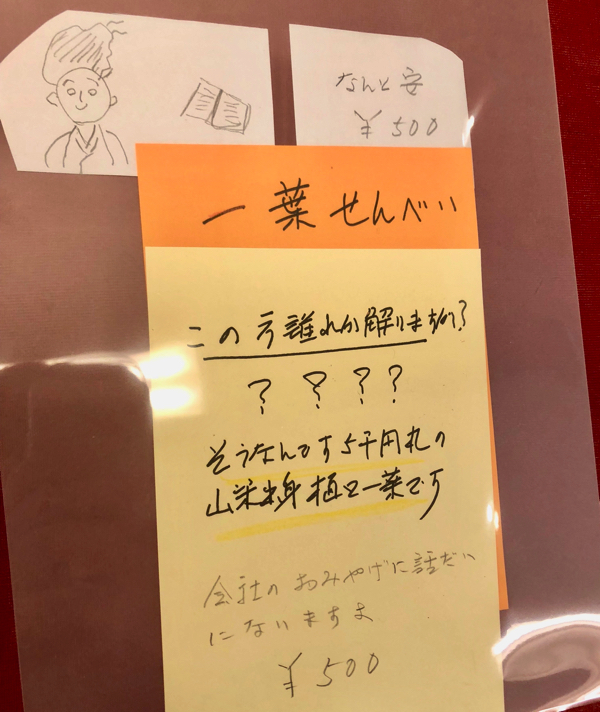 なんと安
¥500
一葉せんべい
この方誰れか解りますか?
? ? ? ?
そうなんです5千円札の
山梨出身樋口一葉です
会社のおみやげに話だい
になりますよ
¥500